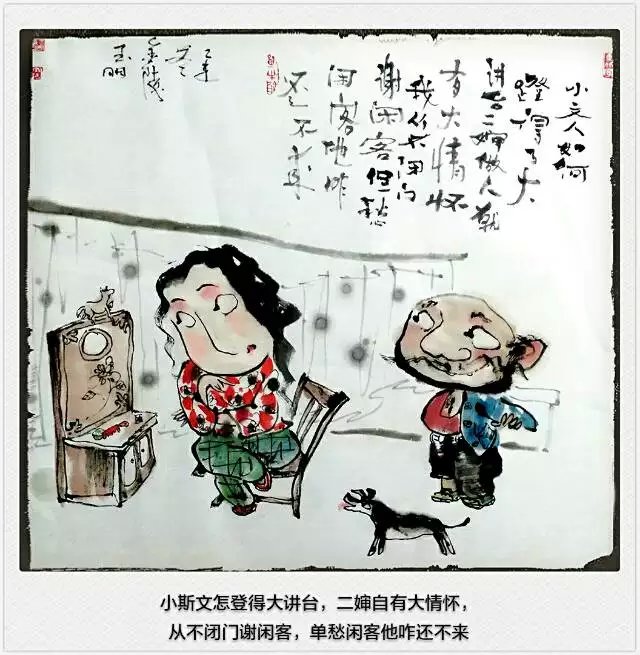 小文人如何
蹬得了大
讲台二婶做人就
有大情怀
我从不闭门
谢闲客但愁
闲客他咋
还不来
乙未
玉明
小斯文怎登得大讲台，二婶自有大情怀，
从不闭门谢闲客，单愁闲客他咋还不来